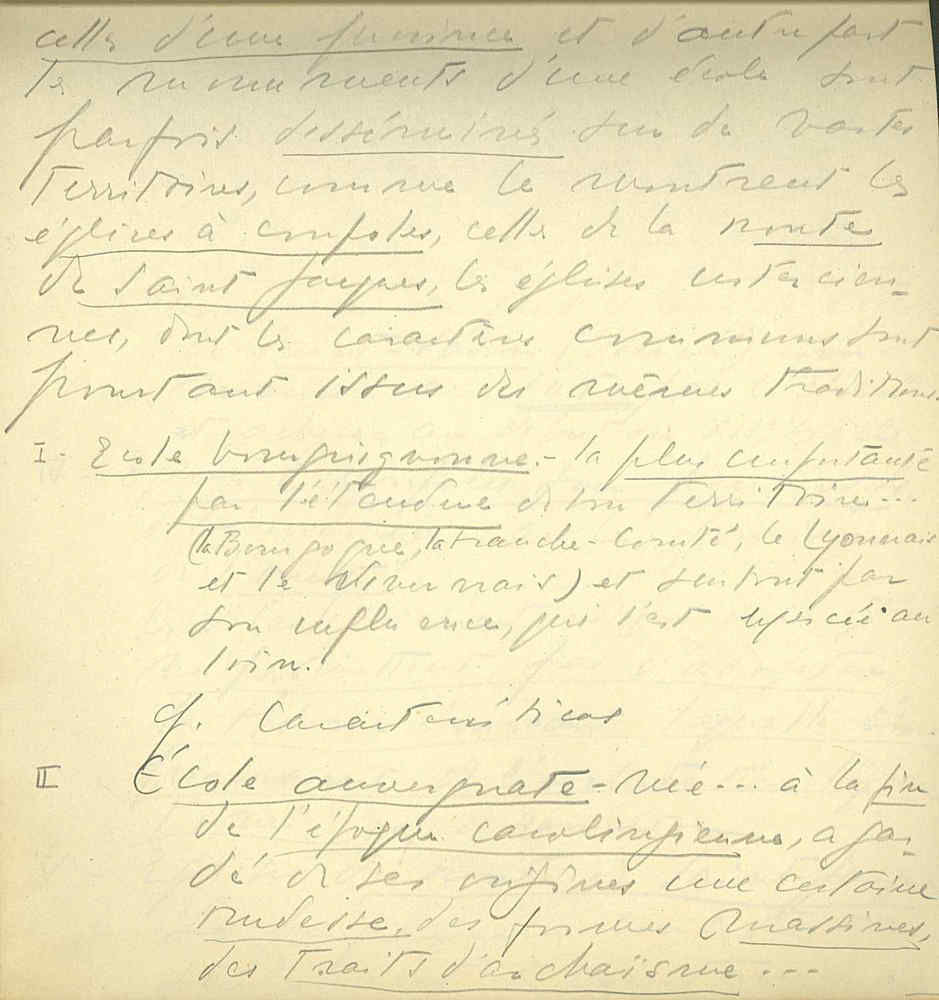 celles d'une province et d'autre part
les monuments d'une école sont
parfois disséminés sur de vastes
territoires, comme le montrent les
églises à coupoles, celles de la route
de Saint Jacques, les églises cistercien-
nes, dont les caractères communs sont
pourtant issus des mêmes traditions.
I- Ecole bourguignonne.- la plus importante
par l'étendue de son territoire...
(la Bourgogne, la Franche-Comté, le Lyonnais
et le Nivernais) et surtout par
son influence, qui s'est exercée au
loin.
cf. Caracteristicas
II École auvergnate - née... à la fin
de l'époque carolingienne, a gar-
dé de ses origines une certaine
rudesse, des formes massives,
des traits d'archaïsme...